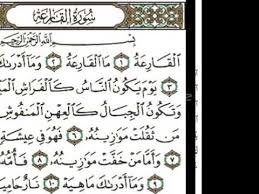 سُورَةُ القَارِعَةِ
بِسْمِ اللَّهِ الرَّحْمَٰنِ الرَّحِيمِ
الْقَارِعَةُ ١ مَا الْقَارِعَةُ ٢ وَمَا أَدْرَىٰكَ
٣ يَوْمَ يَكُونُ النَّاسُ كَالْفَرَاشِ
وَتَكُونُ الْجِبَالُ كَالْعِهْنِ الْمَنفُوشِ
مَن ثَقُلَتْ مَوَازِينُهُ ٦ فَهُوَ فِي عِيشَةٍ
٧ وَأَمَّا مَنْ خَفَّتْ مَوَازِينُهُ ٨ فَأُمُّهُ
٩ وَمَا أَدْرَىٰكَ مَا هِيَهْ ١٠ نَارٌ حَامِيَةٌ